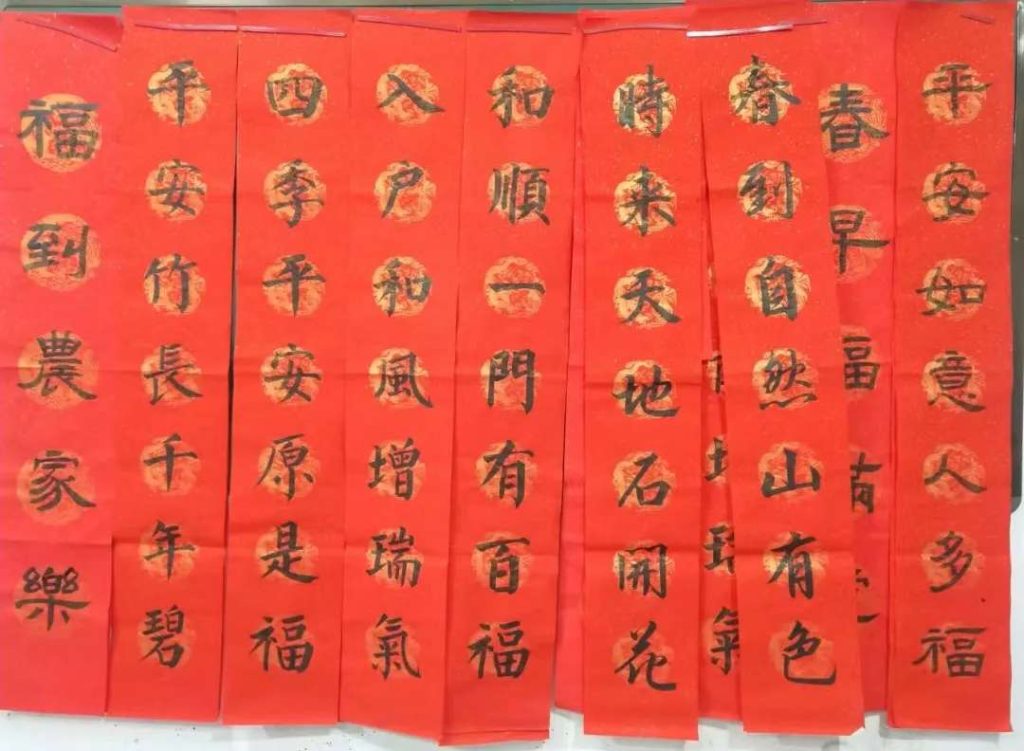 平安如意人多福
春早福有
春到自然山有色
氣
時来天地石開花
和順一門有百福
入户和風增瑞氣
四季平安原是福
平安竹長千年碧
福到農家樂